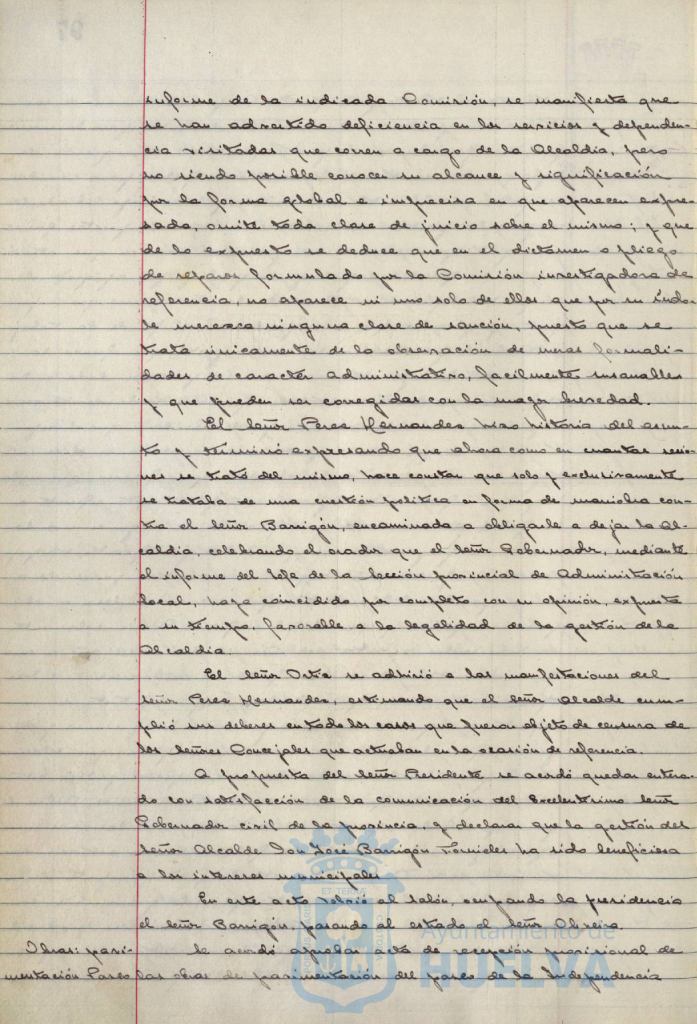 informe de la indicada Comisión, se manifiesta que
se han advertido deficiencia en los servicios y dependen-
cia visitadas que corren a cargo de la Alcaldia, pero
no siendo posible conocer su alcance y significación
por la forma global e imprecisa en que aparecen expre-
sada, omite toda clase de juicio sobre el mismo; y que
de lo expuesto se deduce que en el dictamen o pliego
de reparos formulado por la Comisión investigadora de
referencia, no aparece ni uno solo de ellos que por su indo-
le merezca ninguna clase de sanción, puesto que se
trata únicamente de la observación de meras formali-
dades de caracter administrativo, facilmente subsanables
y que pueden ser corregidas con la mayor brevedad.
El Señor Perez Hernandez hizo historia del asun-
to y terminó expresando que ahora como en cuantas sesio-
nes se trató del mismo, hace constar que solo y exclusivamente
se trataba de una cuestión politica en forma de maniobra con-
tra el Señor Barrigón, encaminada a obligarle a dejar la Al-
caldia, celebrando el orador que el Señor Gobernador, mediante
el informe del Jefe de la Sección provincial de Administración
local, haya coincidido por completo con su opinión, expuesta
a su tiempo, favorable a la legalidad de la gestión de la
Alcaldia.
El Señor Ortiz se adhirió a las manifestaciones del
Señor Perez Hernandez, estimando que el Señor Alcalde cum-
plió sus deberes en todo los casos que fueron objeto de censura de
los Señores Concejales que actuaban en la ocasión de referencia.
A propuesta del Señor Presidente se acordó quedar entera-
do con satisfacción de la comunicación del Excelentisimo Señor
Gobernador civil de la provincia, y declarar que la gestión del
Señor Alcalde Don José Barrigón Fornieles ha sido beneficiosa
a los intereses municipales
En este acto volvió al salón, ocupando la presidencia
el Señor Barrigón, pasando al estrado el Señor
Obras: pavi- Se acordó aprobar acta de recepción provisional de
mentación Paseo las obras de pavimentación del paseo de la Independencia
Ayuntamiento de
HUELVA